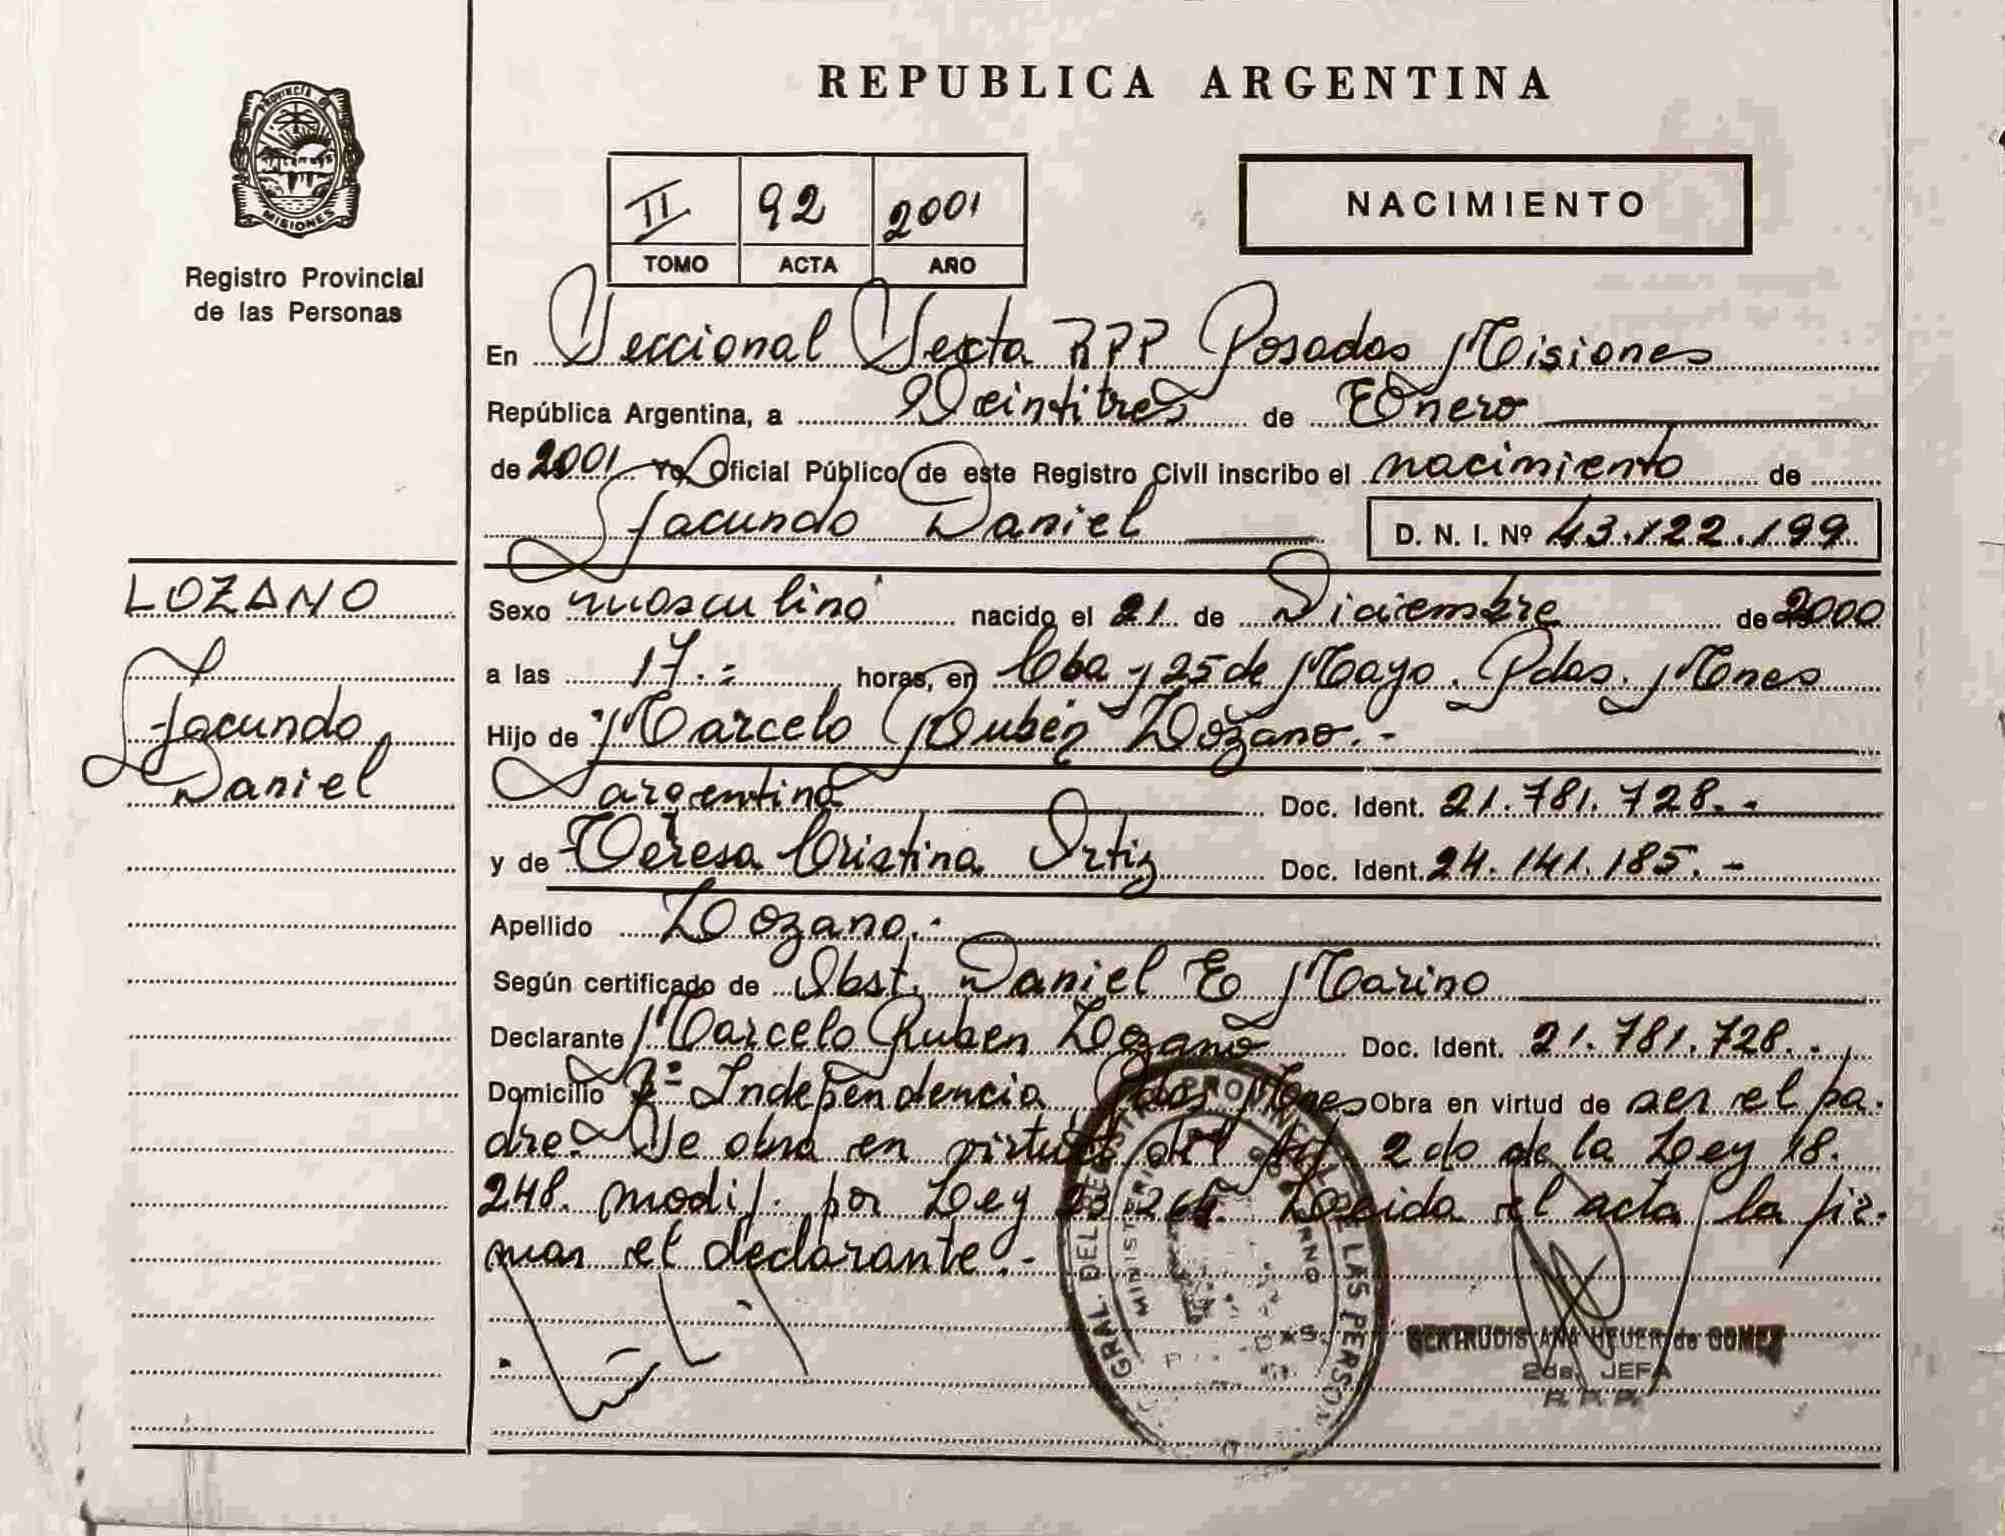 REPUBLICA ARGENTINA
PROVINCIA DE
MISIONES
Registro Provincial
de las Personas
II 92 2001
TOMO ACTA AÑO
NACIMIENTO
En Seccional Sexta RPP Posadas Misiones
República Argentina, a Veintitres de Enero
de 2001 Yo, Oficial Público de este Registro Civil inscribo el nacimiento de
Facundo Daniel D. N. I. Nº 43.122.199
LOZANO
Facundo
Daniel
Sexo masculino nacido el 21 de Diciembre de 2000
a las 17.- horas, en Cba y 25 de Mayo. Pdas. Mnes
Hijo de Marcelo Rubén Lozano.-
argentino Doc. Ident. 21.781.728.-
y de Teresa Cristina Ortiz Doc. Ident. 24.141.185.-
Apellido Lozano.-
Según certificado de Obst. Daniel E Marino
Declarante Marcelo Ruben Lozano Doc. Ident. 21.781.728.-
Domicilio Independencia Pdas Mnes Obra en virtud de ser el pa-
dre. Se obra en virtud del Art 2do de la Ley 18.
248. modif. por Ley 23.264. Leida el acta, la fir-
man el declarante.-
GRAL. DEL REGISTRO PROVINCIAL DE LAS PERSON
MINISTERIO GOBIERNO
GERTRUDIS ANA HEUER de GOMEZ
2da. JEFA
R.P.P.